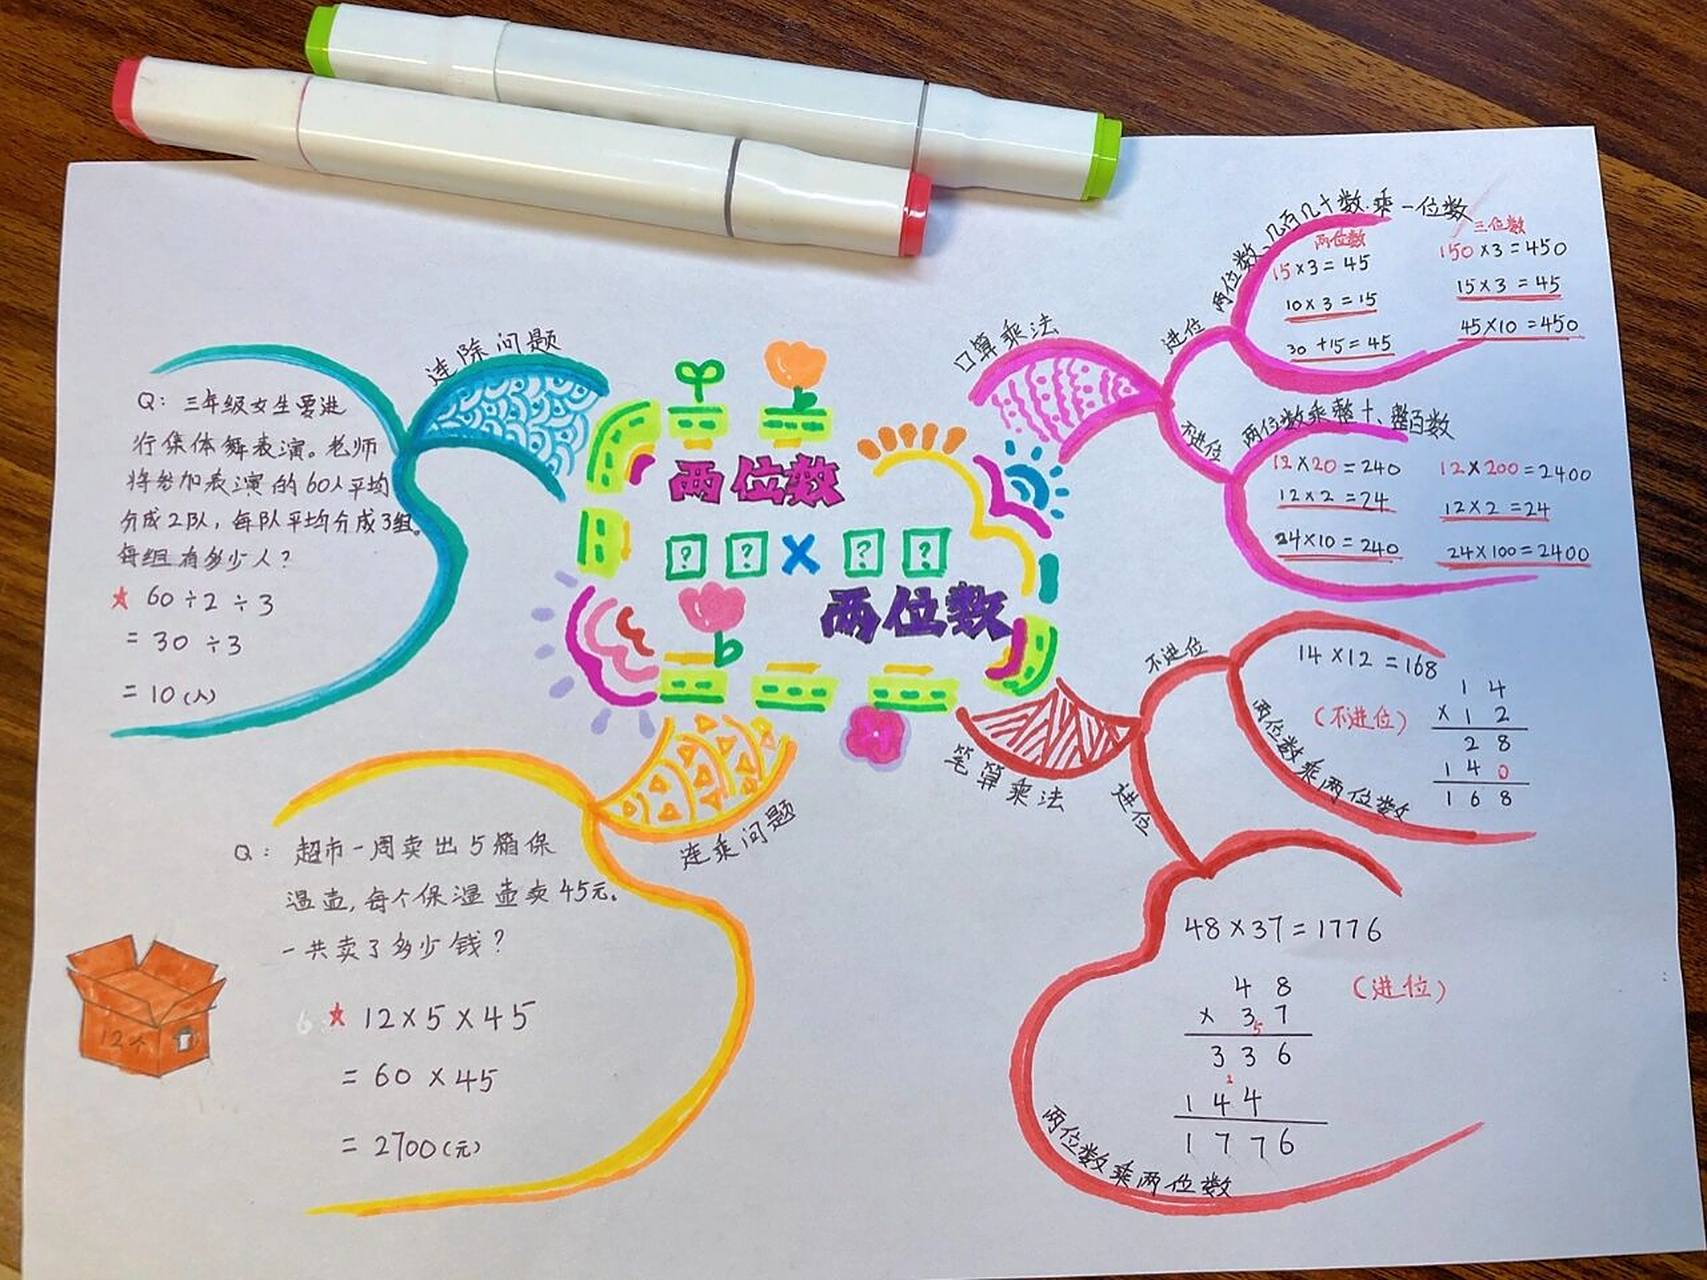 两位数
? ? × ? ?
两位数
连除问题
Q: 三年级女生要进
行集体舞表演。老师
将参加表演的60人平均
分成2队，每队平均分成3组。
每组有多少人？
★ 60÷2÷3
= 30÷3
= 10(人)
连乘问题
Q: 超市一周卖出5箱保
温壶,每个保温壶卖45元。
一共卖了多少钱?
★ 12×5×45
= 60×45
= 2700(元)
12个
口算乘法
进位
两位数、几百几十数乘一位数
两位数
15×3=45
10×3=15
30+15=45
三位数
150×3=450
15×3=45
45×10=450
不进位
两位数乘整十、整百数
12×20=240
12×2=24
24×10=240
12×200=2400
12×2=24
24×100=2400
笔算乘法
不进位
两位数乘两位数
14×12=168
(不进位)
1 4
× 1 2
2 8
1 4 0
1 6 8
进位
两位数乘两位数
48×37=1776
(进位)
4 8
× 3 5 7
3 3 6
2
1 4 4
1 7 7 6